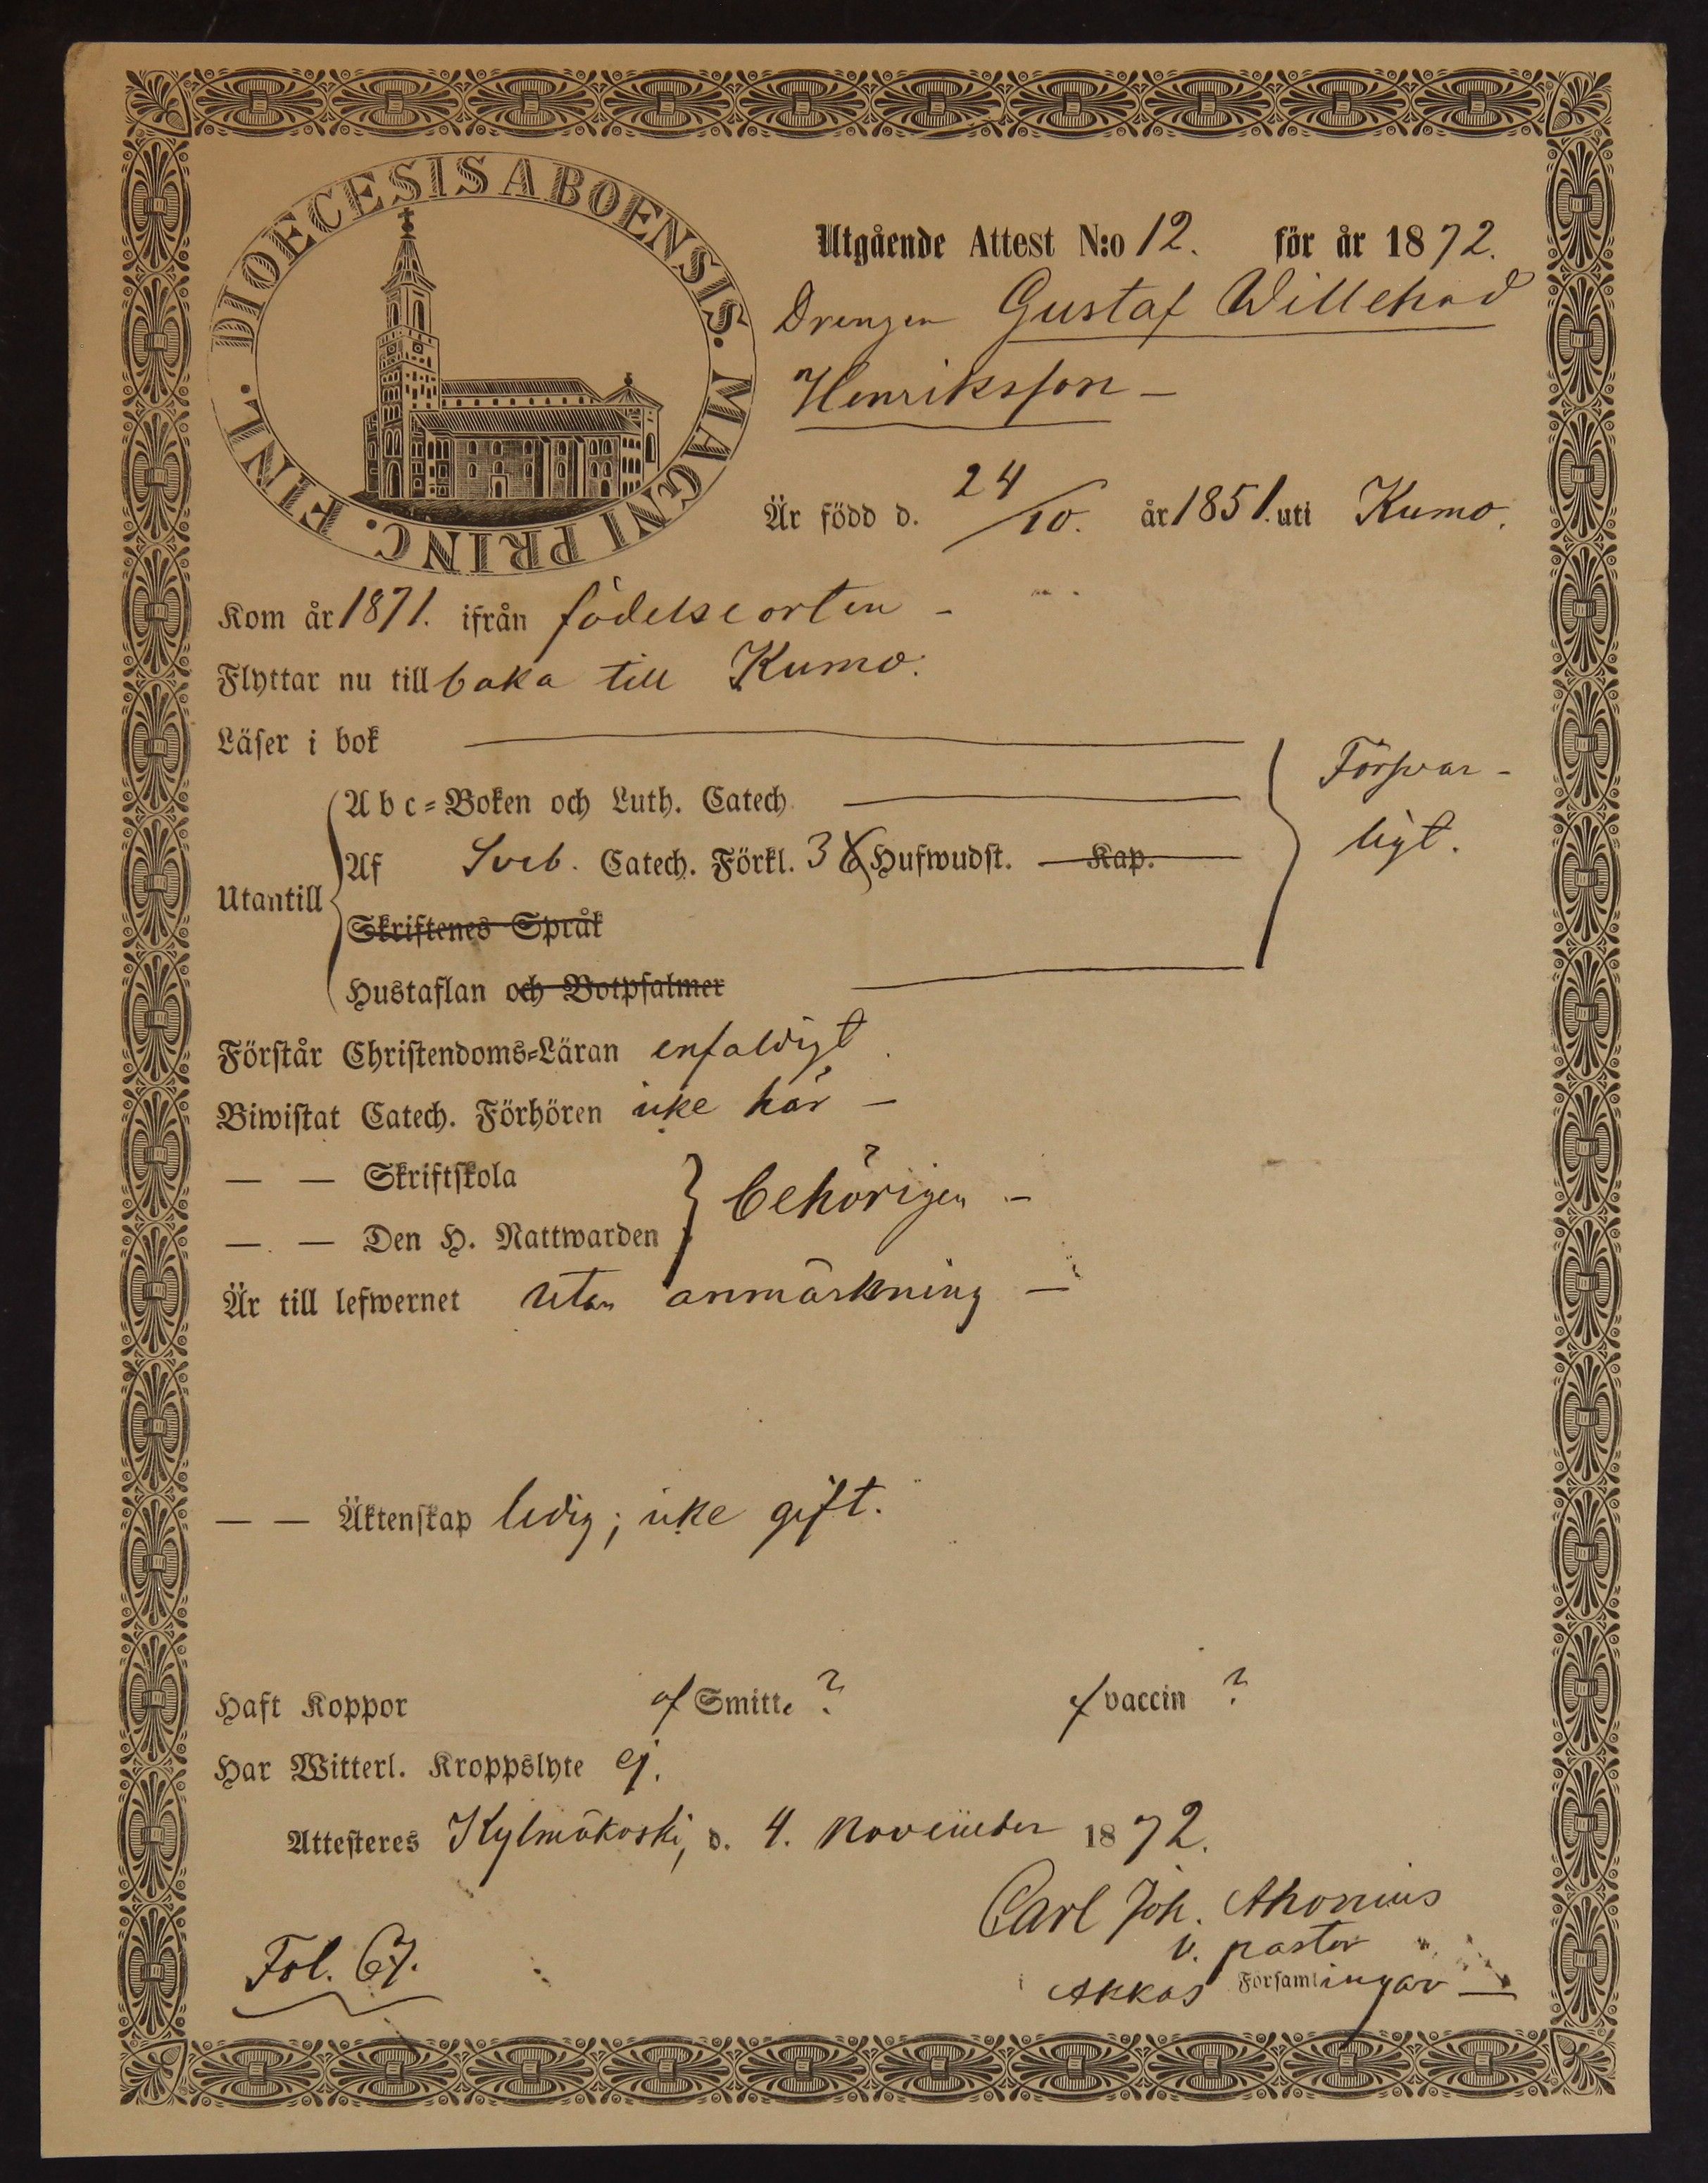 DIOECESIS ABOENSIS. MAGNI PRINC. FINL.
Utgående Attest N:o 12. för år 1872.
Drengen Gustaf Willehad
Henriksson -
Är född d. 24/10. år 1851. uti Kumo.
Kom år 1871. ifrån födelseorten -
Flyttar nu tillbaka till Kumo.
Läser i bok
Abc-Boken och Luth. Catech.
Försvar-
ligt.
Af Sveb. Catech. Förkl. 3 Hufwudst. Kap.
Utantill
Skriftenes Språk
Hustaflan och Botpsalmer
Förstår Christendoms-Läran enfaldigt.
Biwistat Catech. Förhören icke här -
— — Skriftskola
behörigen -
— — Den H. Nattwarden
Är till lefwernet utan anmärkning -
— — Äktenskap ledig; icke gift.
Haft Koppor af Smitte ? af vaccin ?
Har Witterl. Kroppslyte ej.
Attesteres Kylmäkoski, d. 4. November 1872.
Carl Joh. Ahonius
v. pastor
Fol. 67.
i Akkas Församlingar